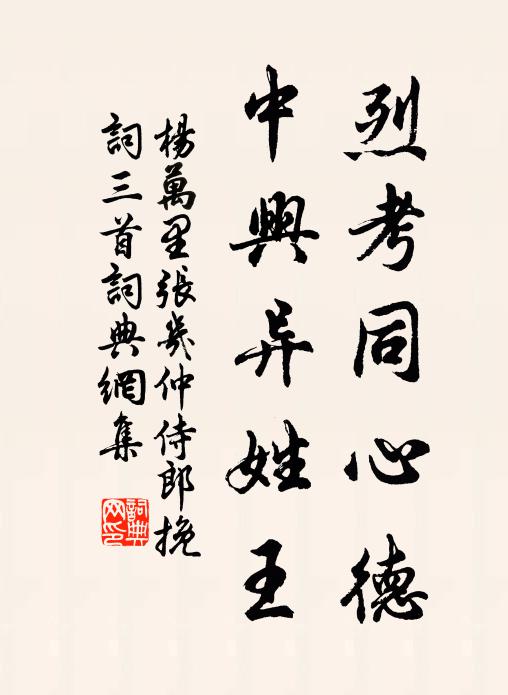 烈考同心德
中興异姓王
楊萬里張幾仲侍郎挽
詞三首詞典網集
詞典
网印